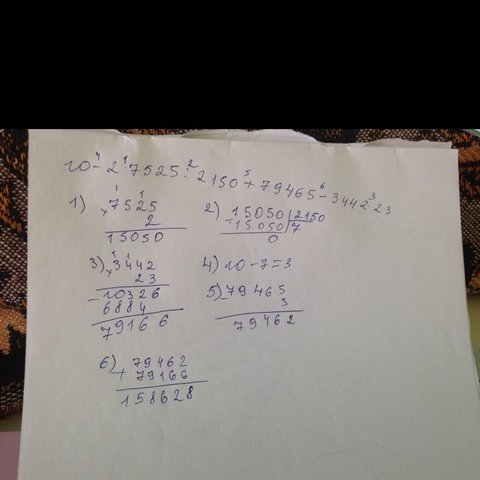 10 - 2 · 7525 : 2150 + 79465 - 3442 · 23
4 1 2 5 6 3
1) × 7525
2
15050
2) - 15050 | 2150
15050 | 7
0
3) × 3442
23
- 10326
6884
79166
4) 10 - 7 = 3
5) - 79465
3
79462
6) + 79462
79166
158628